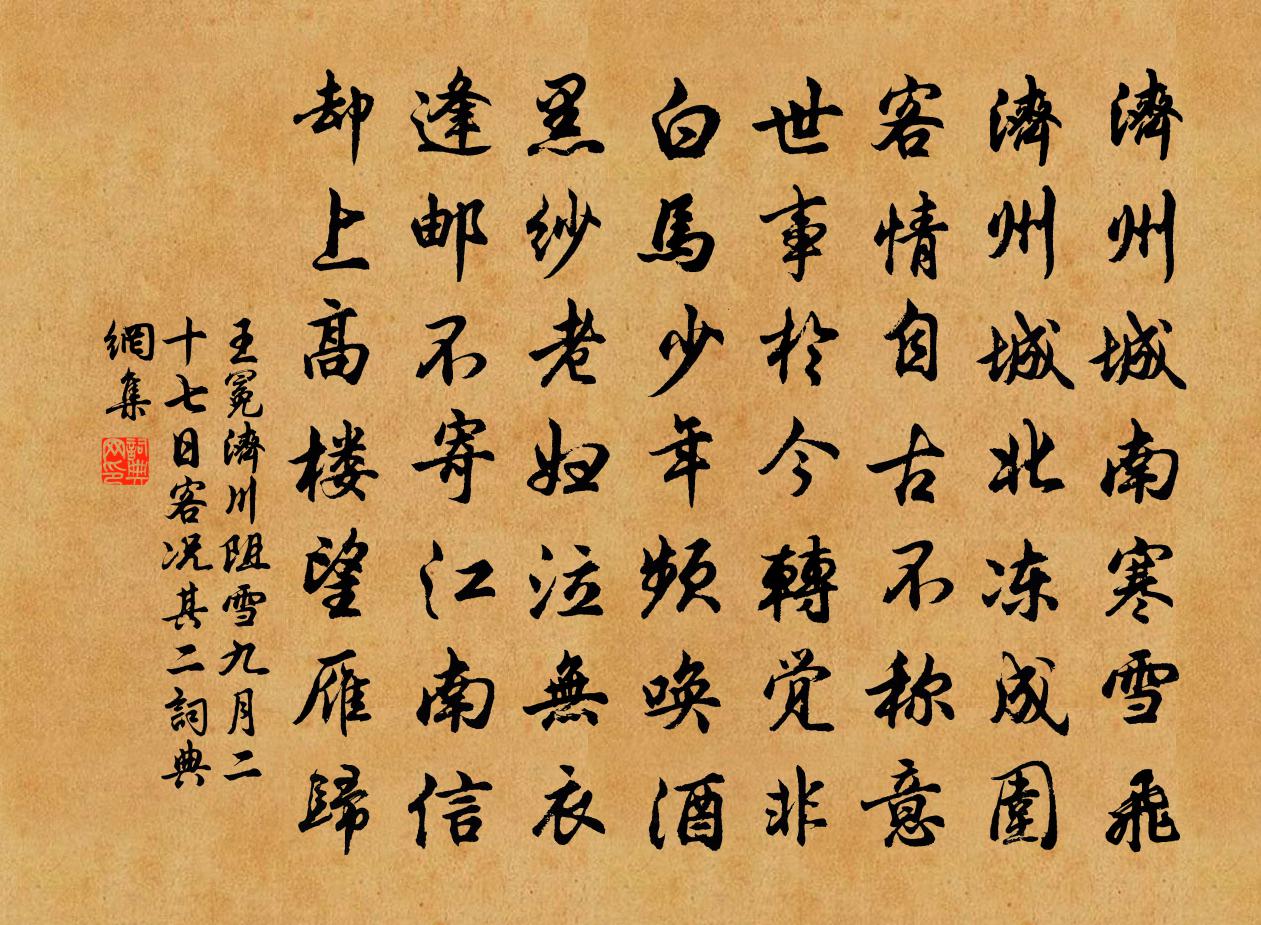 濟州城南寒雪飛
濟州城北冻成圍
客情自古不称意
世事於今轉觉非
白馬少年频唤酒
黑纱老妇泣無衣
逢邮不寄江南信
却上高楼望雁歸
王冕濟川阻雪九月二
十七日客况其二詞典
網集
詞典
网印